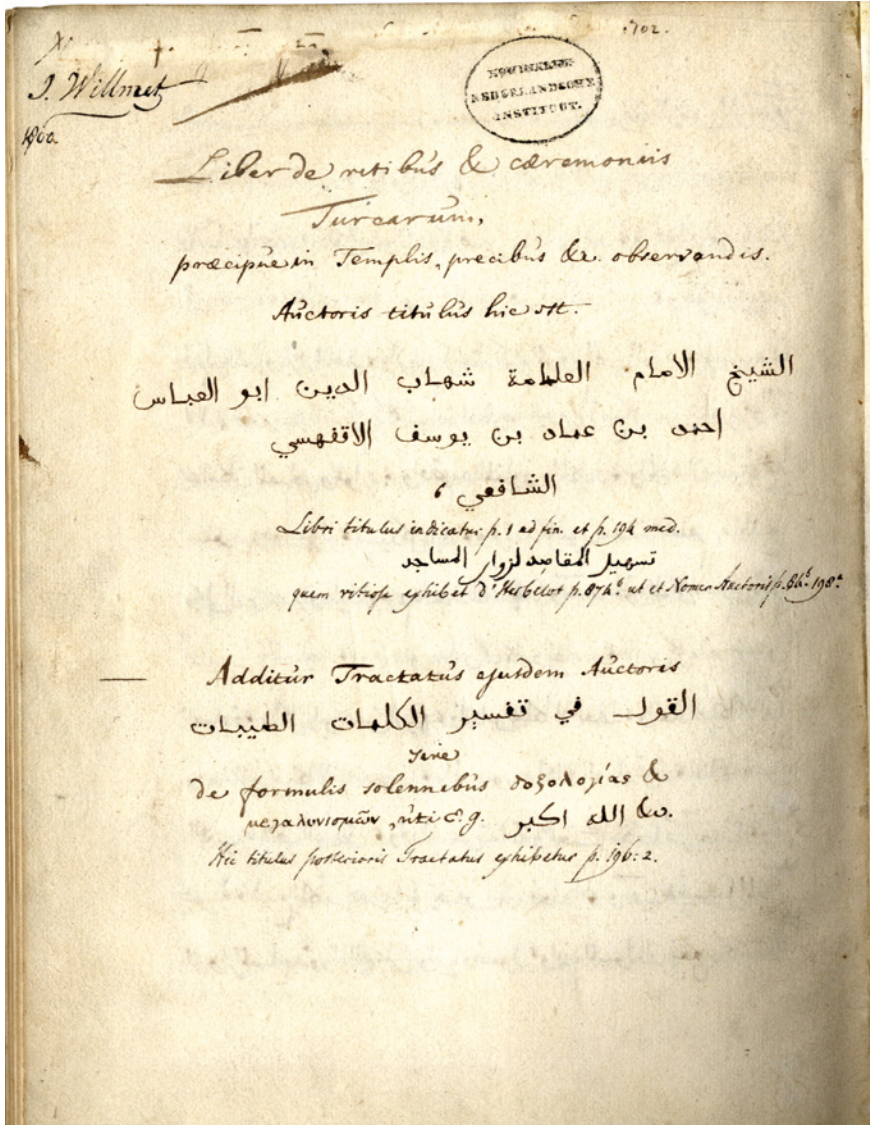 1702.
J. Willmet
1800
KONINKLIJK
NEDERLANDSCHE
INSTITUUT.
Liber de ritibus & cæremoniis
Turcarum,
præcipue in Templis, precibus &c. observandis.
Auctoris titulus hic est.
الشيخ الامام العلامة شهاب الدين ابو العباس
احمد بن عماد بن يوسف الاقفهسي
الشافعي
Libri titulus indicatur p. 1 ad fin. et p. 194 med.
تسهيل المقاصد لزوار المساجد
quem vitiose exhibet d'Herbelot p. 874. ut et Nomen Auctoris p. 198.
Additur Tractatus ejusdem Auctoris
القول في تفسير الكلمات الطيبات
sive
de formulis solennibus δοξολογίας &
μεγαλυνισμῶν, uti e.g. الله اكبر &c.
Hic titulus posterioris Tractatus exhibetur p. 196: 2.